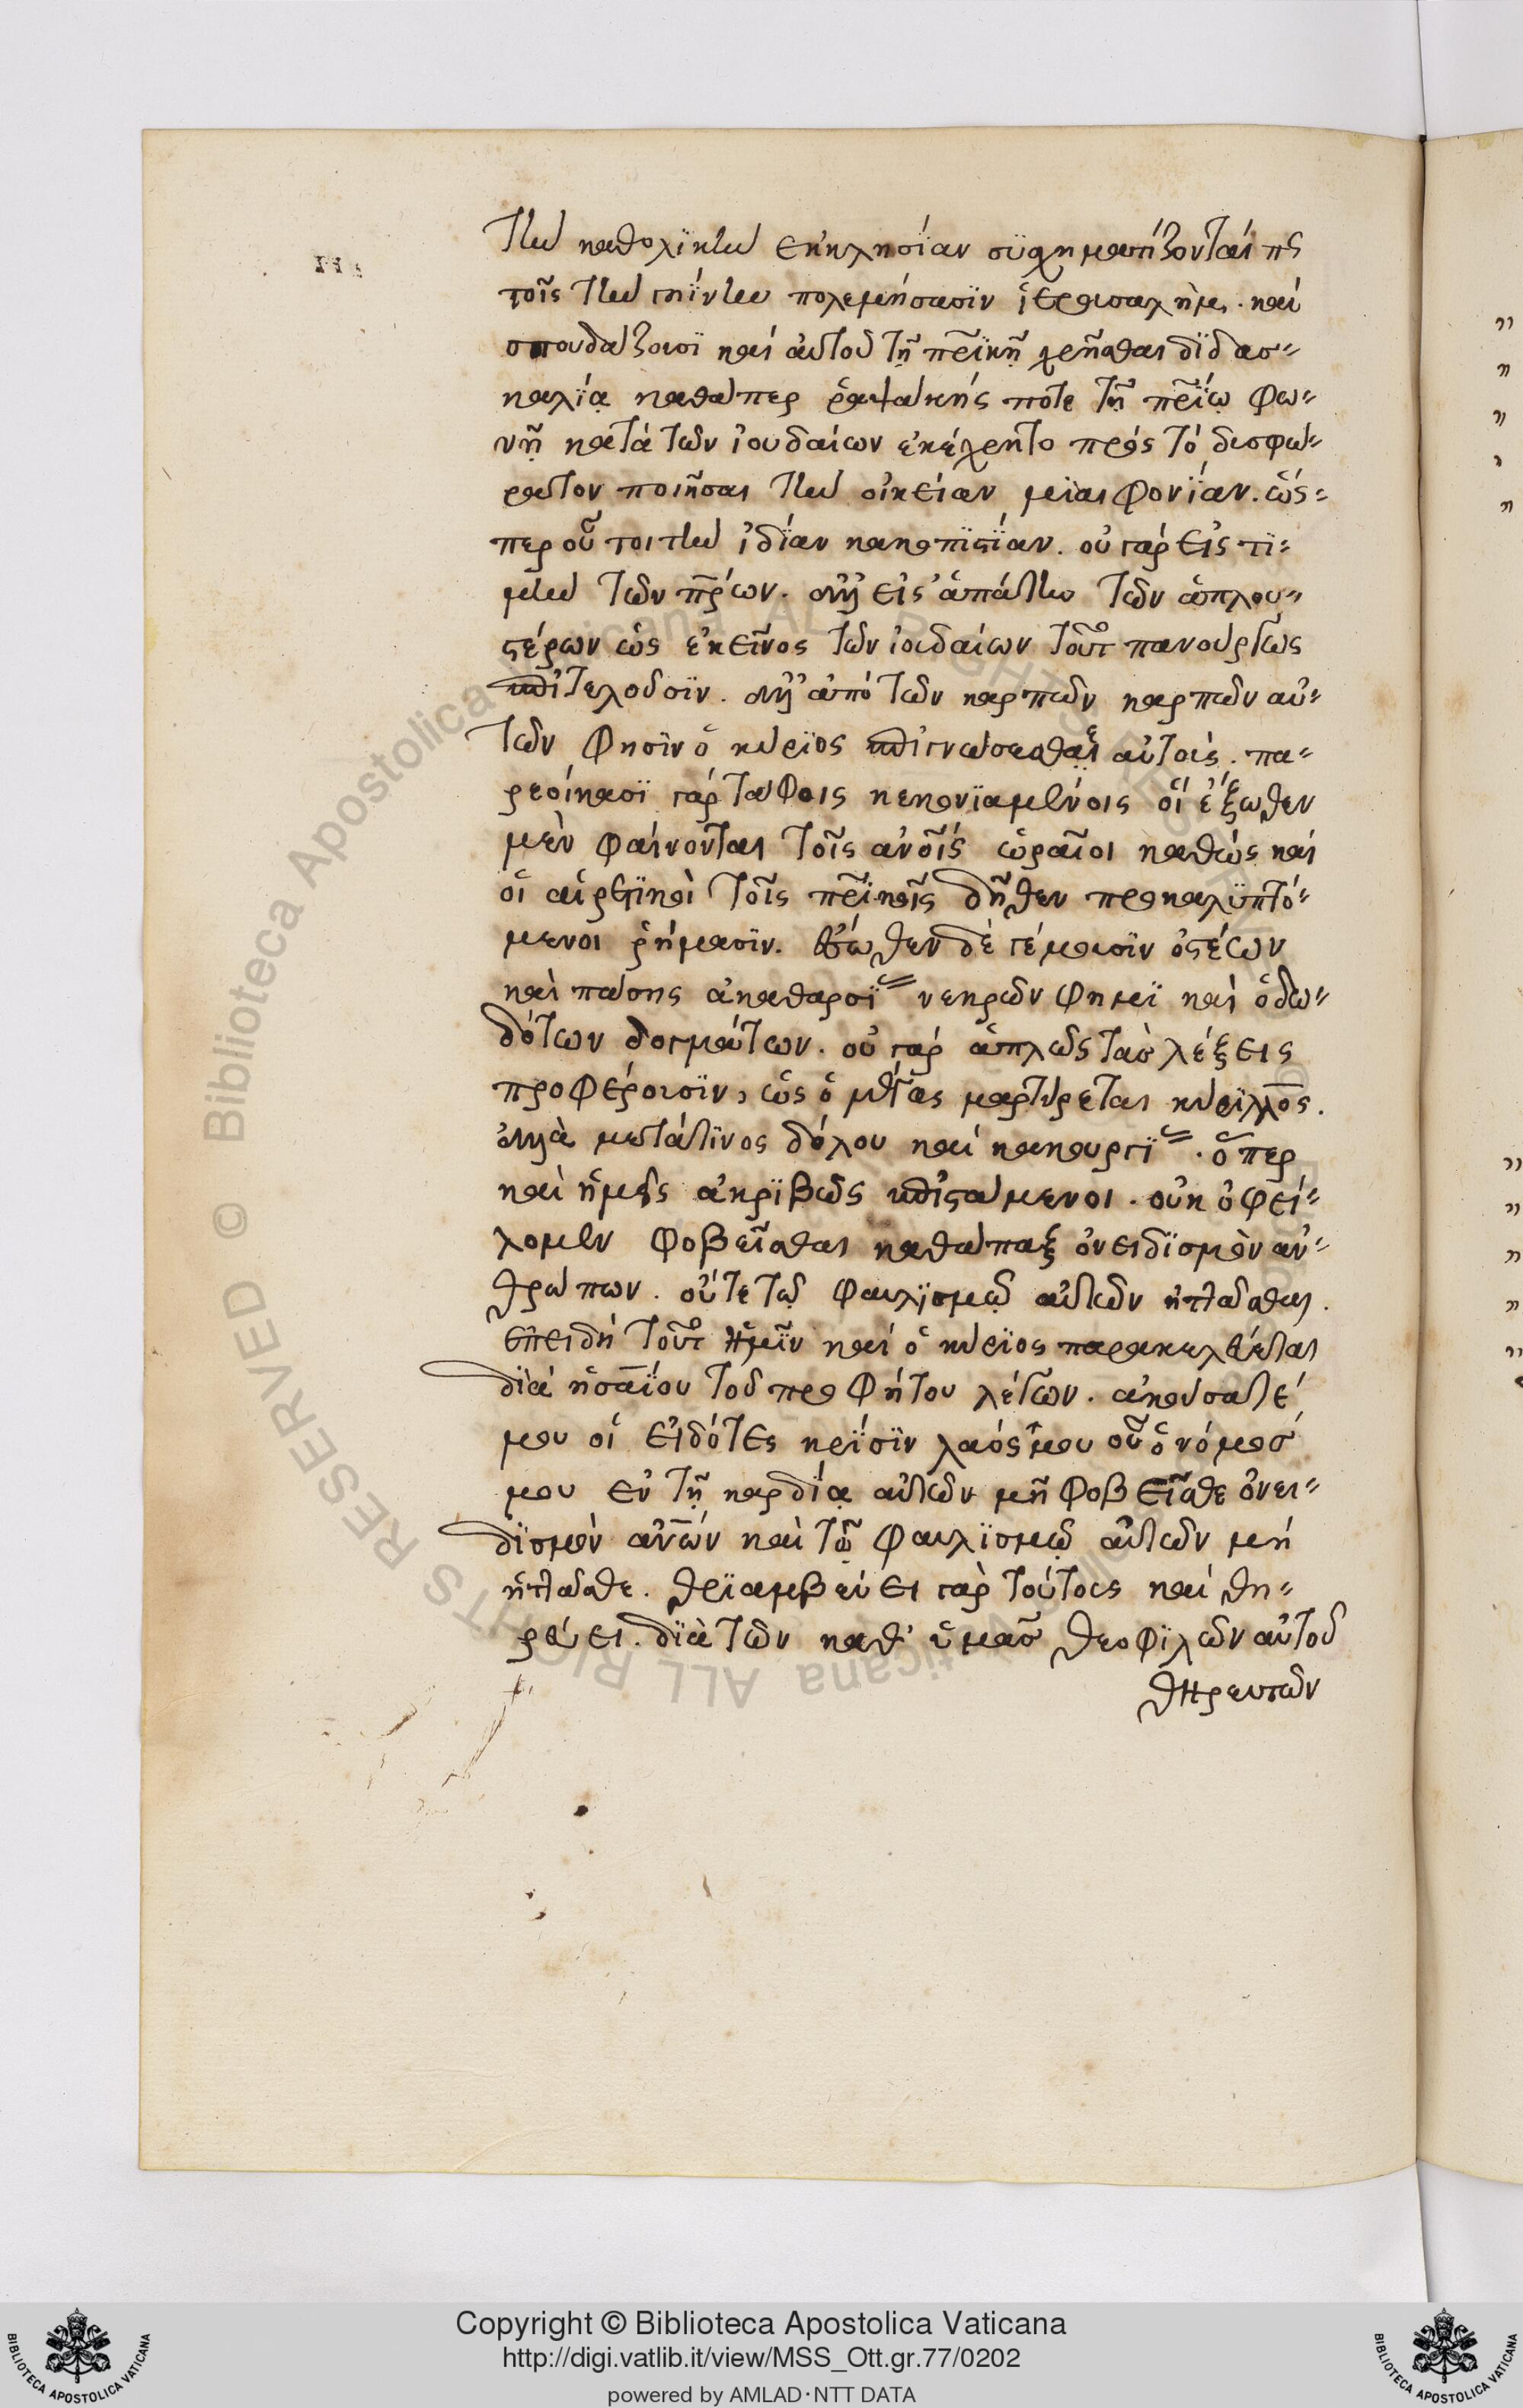 τὴν καθολϊκὴν ἐκκλησΐαν συσχηματίζονταί πς
τοῖς τὴν γηΐνην πολεμήσασϊν ἱερουσαλὴμ. καὶ
σπουδάζουσϊ καὶ αὐτοὶ τῇ π̅ρ̅ϊκῇ χρῆσθαι δϊδασ=
καλΐᾳ καθάπερ ῥαψάκης ποτε τῇ π̅ρ̅ΐῳ φω=
νῇ κατὰ τῶν ἰουδαίων ἐκέχρητο πρὸς τὸ δυσφώ=
ρατον ποιῆσαι τὴν οἰκείαν μϊαιφονΐαν. ὥς=
περ οὗτοι τὴν ἰδΐαν κακοπϊστΐαν. οὐ γάρ εἰς τϊ=
μὴν τῶν π̅ρ̅ων. ἀλλ' εἰς ἀπάτην τῶν ἁπλου=
στέρων ὡς ἐκεῖνος τῶν ἰουδαίων τοῦτο πανούργως
ἐπιτελοῦσϊν. ἀλλ' ἀπὸ τῶν καρπῶν καρπῶν αὐ=
τῶν φησϊν ὁ κύρϊος ἐπιγνώσεσθαι αὐτούς. πα=
ρεοίκασϊ γάρ τάφοις κεκονϊαμένοις οἵ ἔξωθεν
μὲν φαίνονται τοῖς ἀν̅οῖς ὡραῖοι καθὼς καὶ
οἱ αἱρετϊκοὶ τοῖς π̅ρ̅ϊκοῖς δῆθεν προκαλϋπτό=
μενοι ῥήμασϊν. ἔσωθεν δὲ γέμουσϊν ὀστέων
καὶ πάσης ἀκαθαρσΐας νεκρῶν φημϊ καὶ ὀδω=
δότων δογμάτων. οὐ γάρ ἁπλῶς τὰς λέξεις
προφέρουσϊν, ὡς ὁ μέγας μαρτύρεται κύρϊλλος.
ἀλλὰ μετά τϊνος δόλου καὶ κακουργΐας. ὅπερ
καὶ ἡμεῖς ἀκρϊβῶς ἐπιστάμενοι. οὐκ ὀφεί=
λομεν φοβεῖσθαι καθάπαξ ὀνειδϊσμὸν ἀν=
θρώπων. οὔτε τῷ φαυλϊσμῷ αὐτῶν ἡττᾶσθαι.
ἐπειδὴ τοῦτο ἡμῖν καὶ ὁ κύρϊος παρακελεύεται
δϊὰ ἡσαΐου τοῦ προφήτου λέγων. ἀκούσατέ
μου οἱ εἰδότες κρΐσϊν λαός μου οὗ ὁ νόμος
μου ἐν τῇ καρδίᾳ αὐτῶν μὴ φοβεῖσθε ὀνει=
δϊσμὸν ἀν̅ων καὶ τῷ φαυλϊσμῷ αὐτῶν μὴ
ἡττᾶσθε. θρϊαμβεύει γὰρ τούτους καὶ θη=
ρεύει. δϊὰ τῶν καθ' ὑμᾶς θεοφϊλῶν αὐτοῦ
θηρευτῶν
Copyright © Biblioteca Apostolica Vaticana
http://digi.vatlib.it/view/MSS_Ott.gr.77/0202
powered by AMLAD·NTT DATA